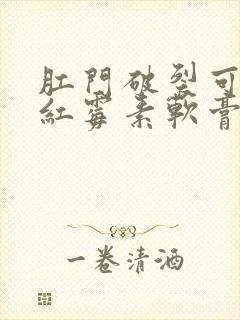 肛門破裂可
紅霉素軟膏
一卷清酒